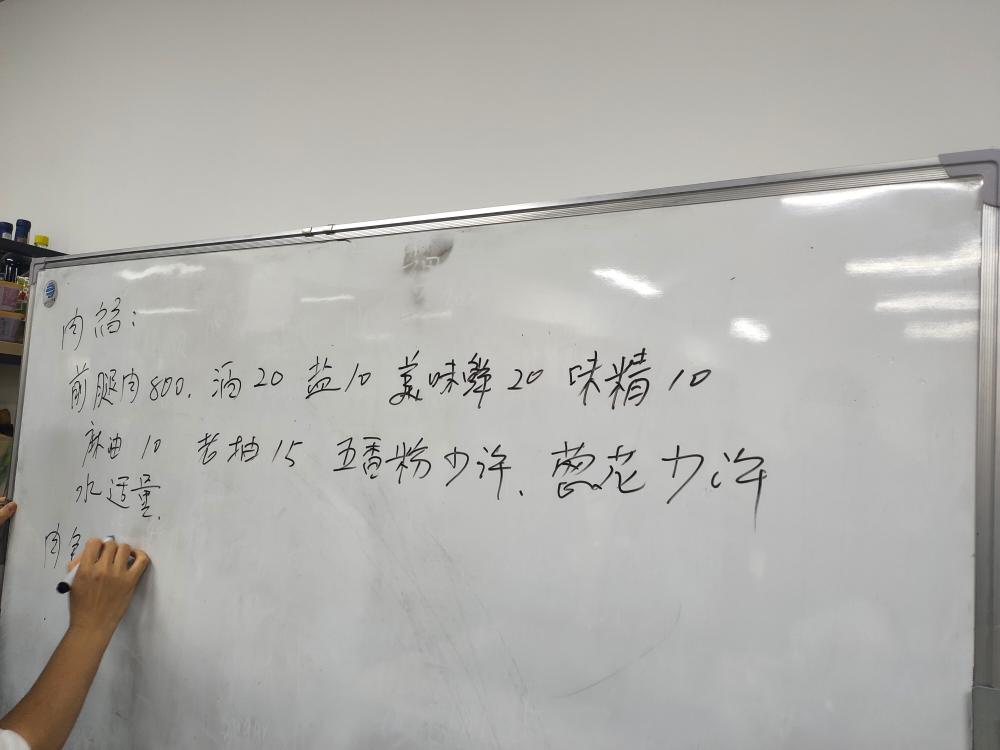 肉馅：
前腿肉800. 酒20 盐10 美味鲜20 味精10
麻油10 老抽15 五香粉少许、葱花少许
水适量.
肉